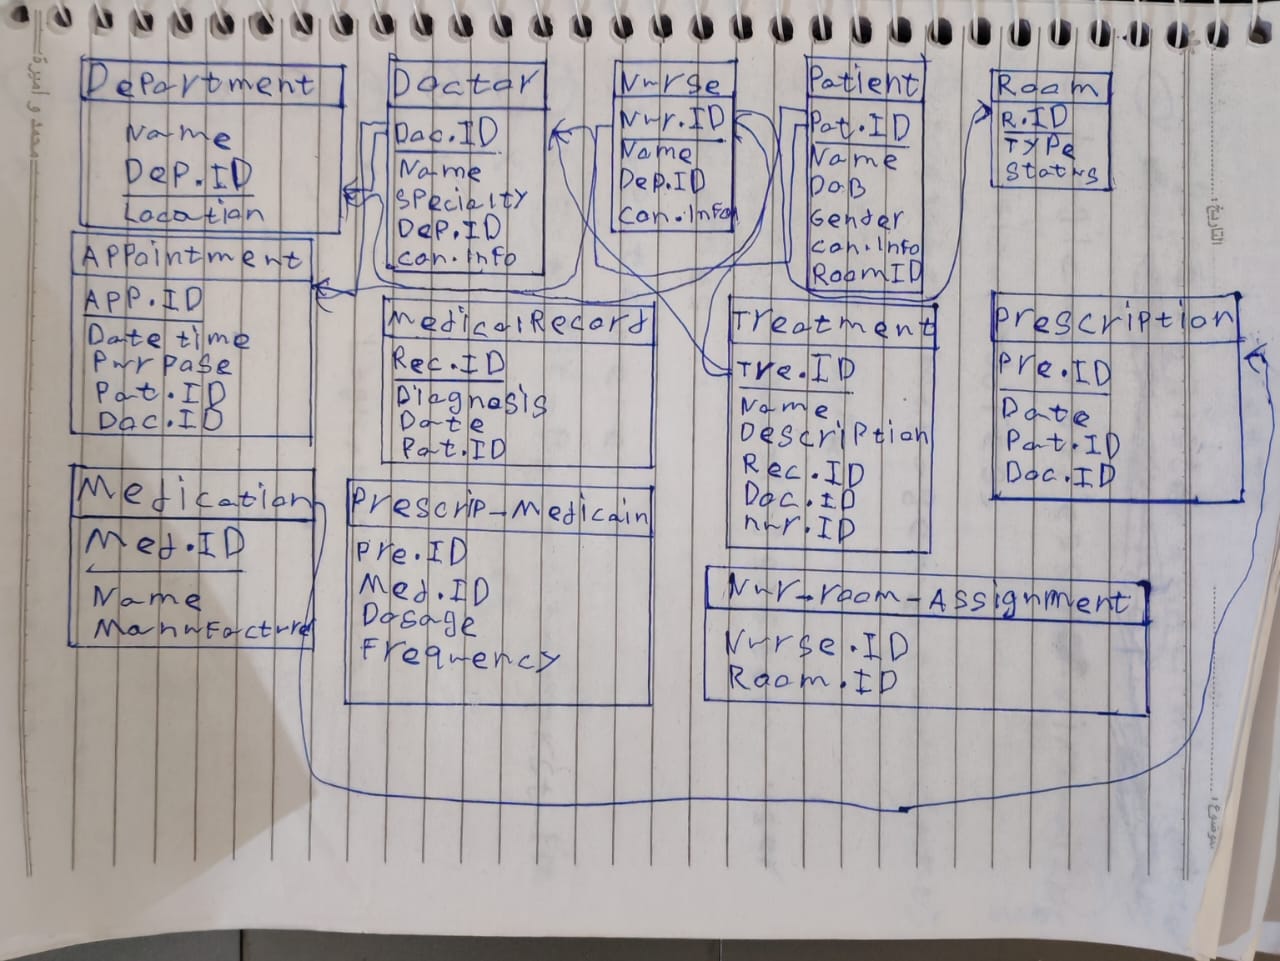 Department
Name
Dep.ID
Location
Doctor
Doc.ID
Name
Specialty
Dep.ID
Con.info
Nurse
Nur.ID
Name
Dep.ID
Con.Info
Patient
Pat.ID
Name
DoB
Gender
Con.info
RoomID
Room
R.ID
Type
Status
Appointment
App.ID
Date time
Purpose
Pat.ID
Doc.ID
MedicalRecord
Rec.ID
Diagnosis
Date
Pat.ID
Treatment
Tre.ID
Name
Description
Rec.ID
Doc.ID
nur.ID
Prescription
Pre.ID
Date
Pat.ID
Doc.ID
Medication
Med.ID
Name
Manufacture
Prescrip_Medicain
Pre.ID
Med.ID
Dosage
Frequency
Nur_room_Assignment
Nurse.ID
Room.ID
التاريخ:
موضوع: